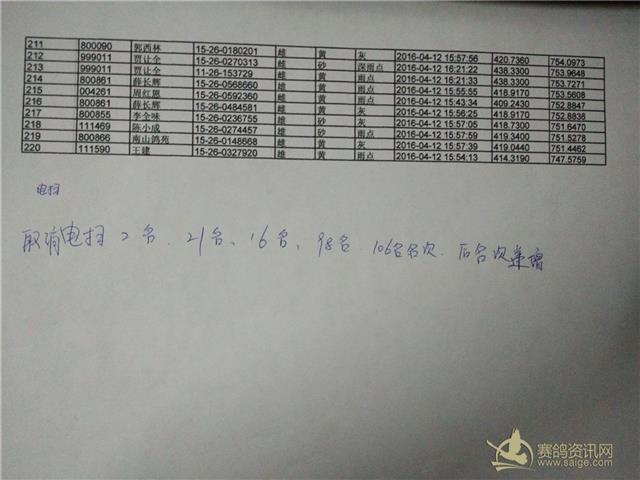 211 800090 郭西林 15-26-0180201 雄 黄 灰 2016-04-12 15:57:56 420.7360 754.0973
212 999011 贾让全 15-26-0270313 雌 砂 深雨点 2016-04-12 16:21:22 438.3300 753.9648
213 999011 贾让全 11-26-153729 雄 黄 雨点 2016-04-12 16:21:33 438.3300 753.7271
214 800861 薛长辉 15-26-0568660 雄 黄 雨点 2016-04-12 15:55:55 418.9170 753.5608
215 004261 周红恩 15-26-0592360 雄 黄 雨点 2016-04-12 15:43:34 409.2430 752.8847
216 800861 薛长辉 15-26-0484581 雄 黄 灰 2016-04-12 15:56:25 418.9170 752.8836
217 800855 李全味 15-26-0236755 雄 砂 灰 2016-04-12 15:57:05 418.7300 751.6470
218 111469 陈小成 15-26-0274457 雄 砂 雨点 2016-04-12 15:57:59 419.3430 751.5278
219 800866 南山鸽苑 15-26-0148668 雄 黄 灰 2016-04-12 15:57:39 419.0440 751.4462
220 111590 王建 15-26-0327920 雄 黄 雨点 2016-04-12 15:54:13 414.3190 747.5759
电扫
取消电扫2名、21名、16名、98名、106名名次、后名次递增
赛鸽资讯网
www.saige.com